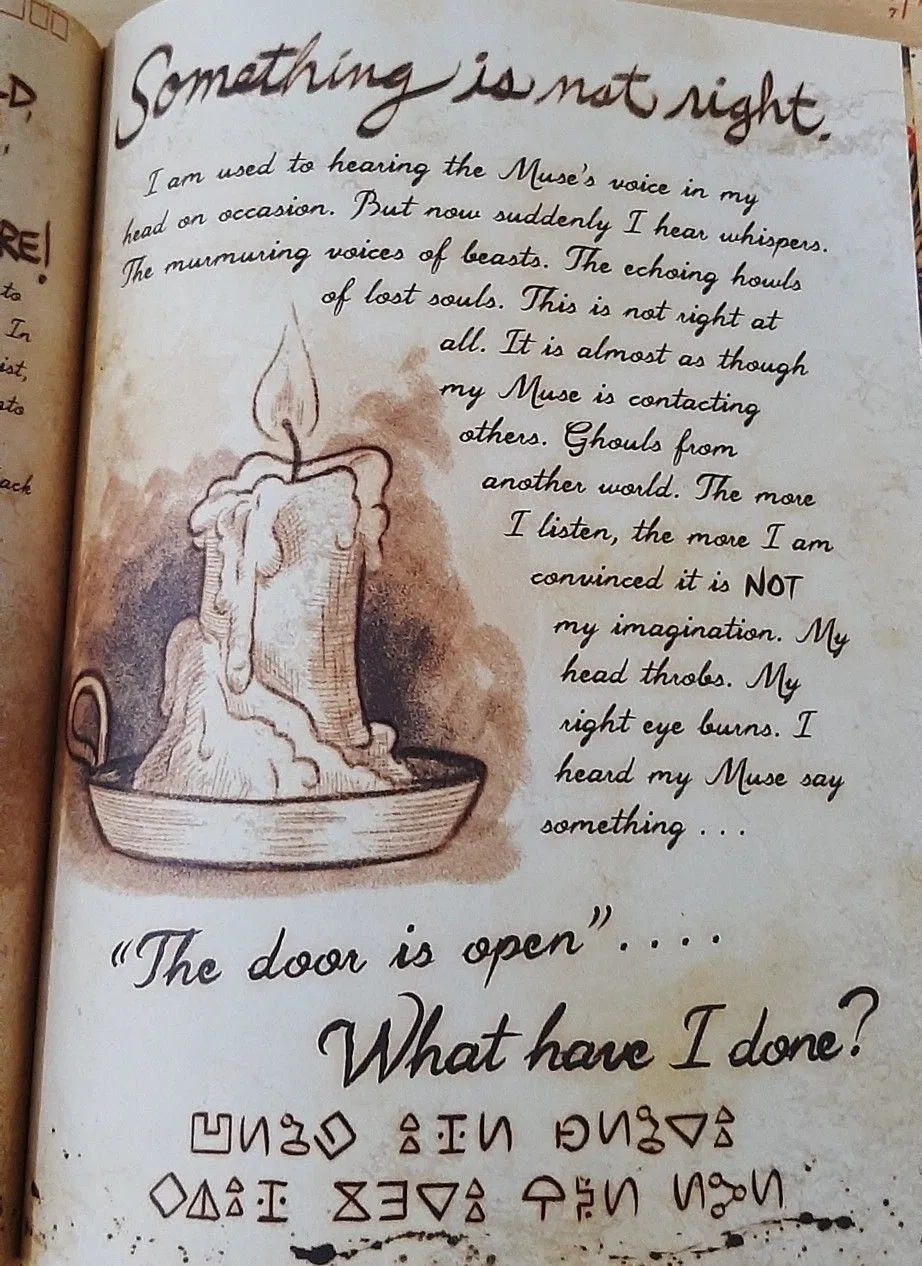 Something is not right.
I am used to hearing the Muse's voice in my
head on occasion. But now suddenly I hear whispers.
The murmuring voices of beasts. The echoing howls
of lost souls. This is not right at
all. It is almost as though
my Muse is contacting
others. Ghouls from
another world. The more
I listen, the more I am
convinced it is NOT
my imagination. My
head throbs. My
right eye burns. I
heard my Muse say
something . . .
“The door is open” . . . .
What have I done?
RE!
to
In
ist,
ato
ack
7